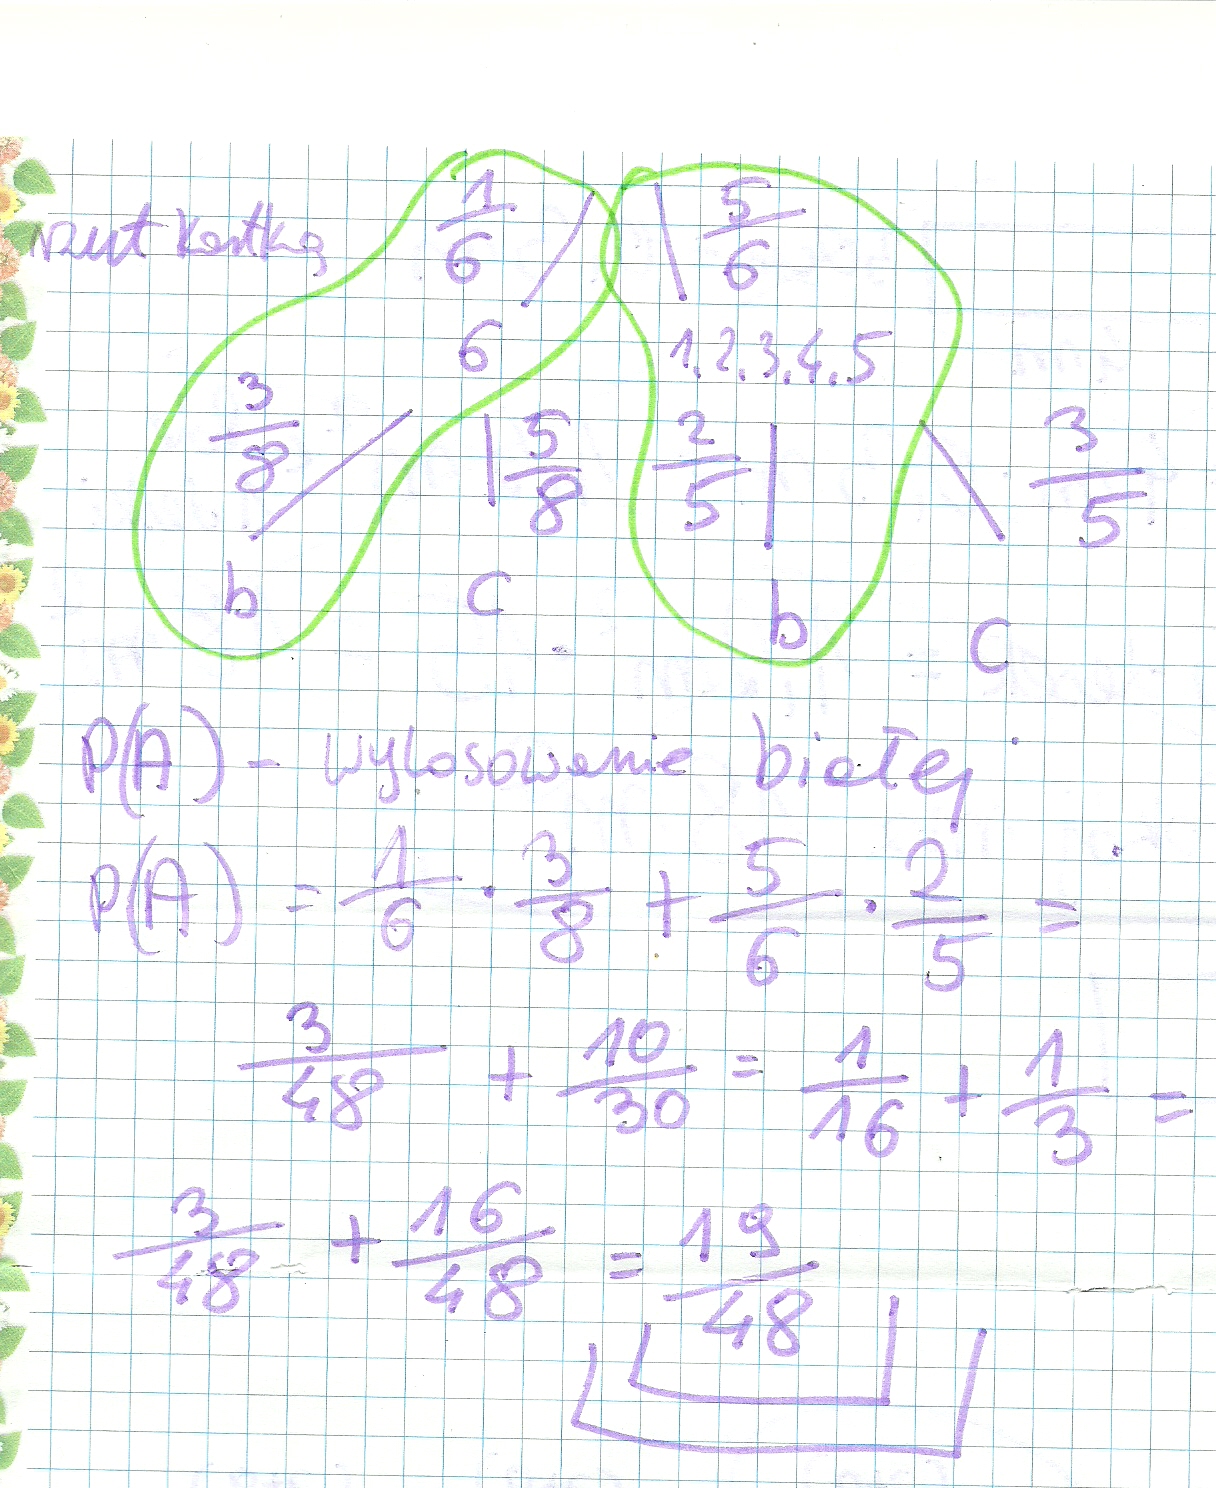 rzut kostką 1/6 5/6
6 1,2,3,4,5
3/8 5/8 2/5 3/5
b c b c
P(A) - wylosowanie białej
P(A) = 1/6 · 3/8 + 5/6 · 2/5 =
3/48 + 10/30 = 1/16 + 1/3 =
3/48 + 16/48 = 19/48